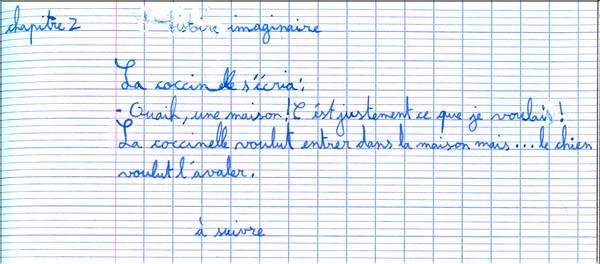 chapitre 2 histoire imaginaire
La coccinelle s'écria :
- Ouaih, une maison ! C'est justement ce que je voulais !
La coccinelle voulut entrer dans la maison mais... le chien
voulut l'avaler.
à suivre